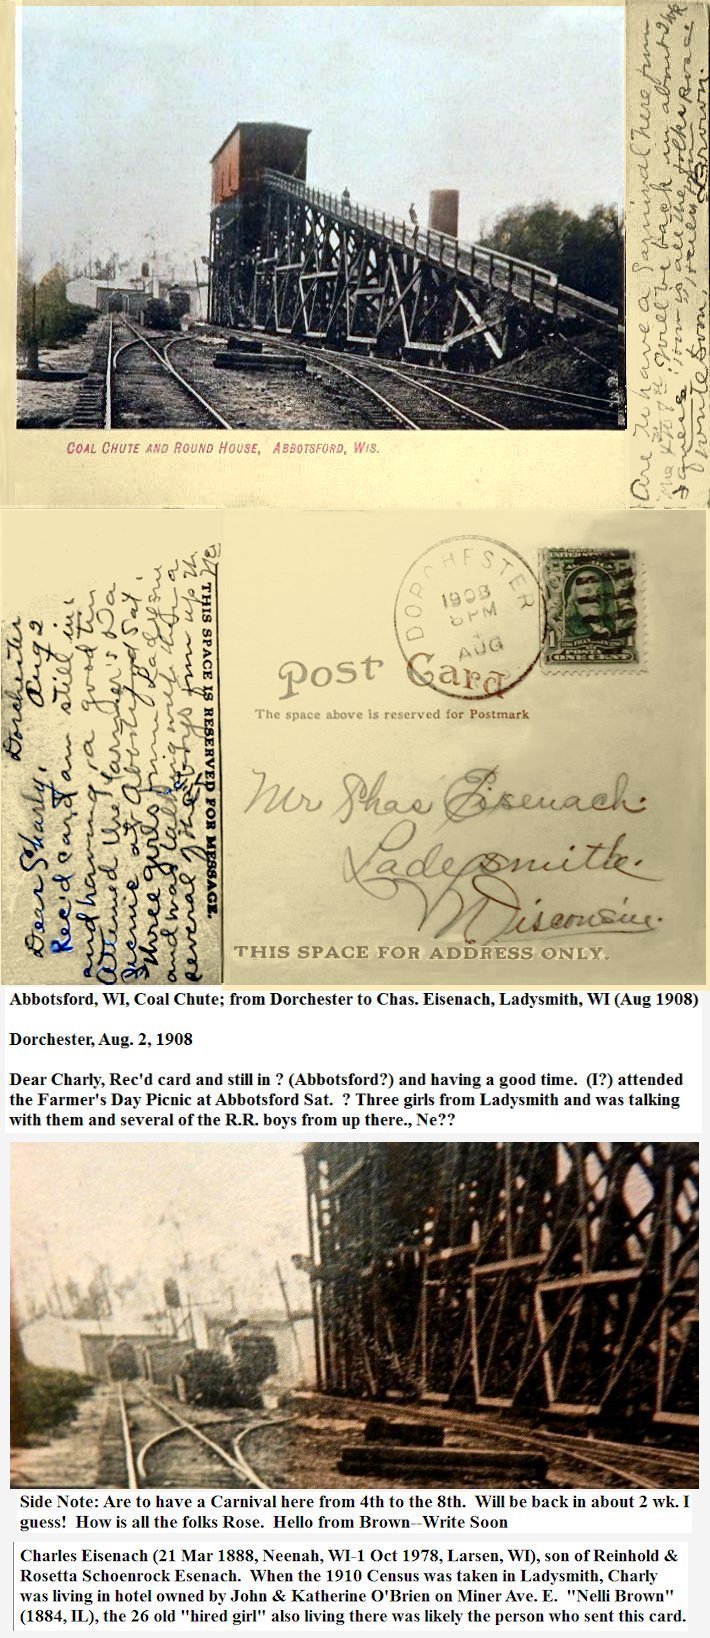 Are to have a Carnival here from
the 4 to 8th. Will be back in about 2 wk
I guess. How is all the folks Rose
Hello from Brown.
Write Soon,
COAL CHUTE AND ROUND HOUSE, ABBOTSFORD, WIS.
Dorchester
Aug 2
Dear Sharly,
Rec'd card am still in
and having a good tim
Attened the Farmer's Da
Picnic at Abbotsford Sat.
three girls from Ladysm
and was talking with them a
several of the boys from up th
THIS SPACE IS RESERVED FOR MESSAGE.
DORCHESTER
1908
6 PM
AUG
UNITED STATES
FRANKLIN
POSTAGE
1 ONE CENT 1
Post Card
The space above is reserved for Postmark
Mr Chas Eisenach.
Ladesmith.
Wisconsin.
THIS SPACE FOR ADDRESS ONLY.
Abbotsford, WI, Coal Chute; from Dorchester to Chas. Eisenach, Ladysmith, WI (Aug 1908)
Dorchester, Aug. 2, 1908
Dear Charly, Rec'd card and still in ? (Abbotsford?) and having a good time. (I?) attended
the Farmer's Day Picnic at Abbotsford Sat. ? Three girls from Ladysmith and was talking
with them and several of the R.R. boys from up there., Ne??
Side Note: Are to have a Carnival here from 4th to the 8th. Will be back in about 2 wk. I
guess! How is all the folks Rose. Hello from Brown--Write Soon
Charles Eisenach (21 Mar 1888, Neenah, WI-1 Oct 1978, Larsen, WI), son of Reinhold &
Rosetta Schoenrock Esenach. When the 1910 Census was taken in Ladysmith, Charly
was living in hotel owned by John & Katherine O'Brien on Miner Ave. E. "Nelli Brown"
(1884, IL), the 26 old "hired girl" also living there was likely the person who sent this card.